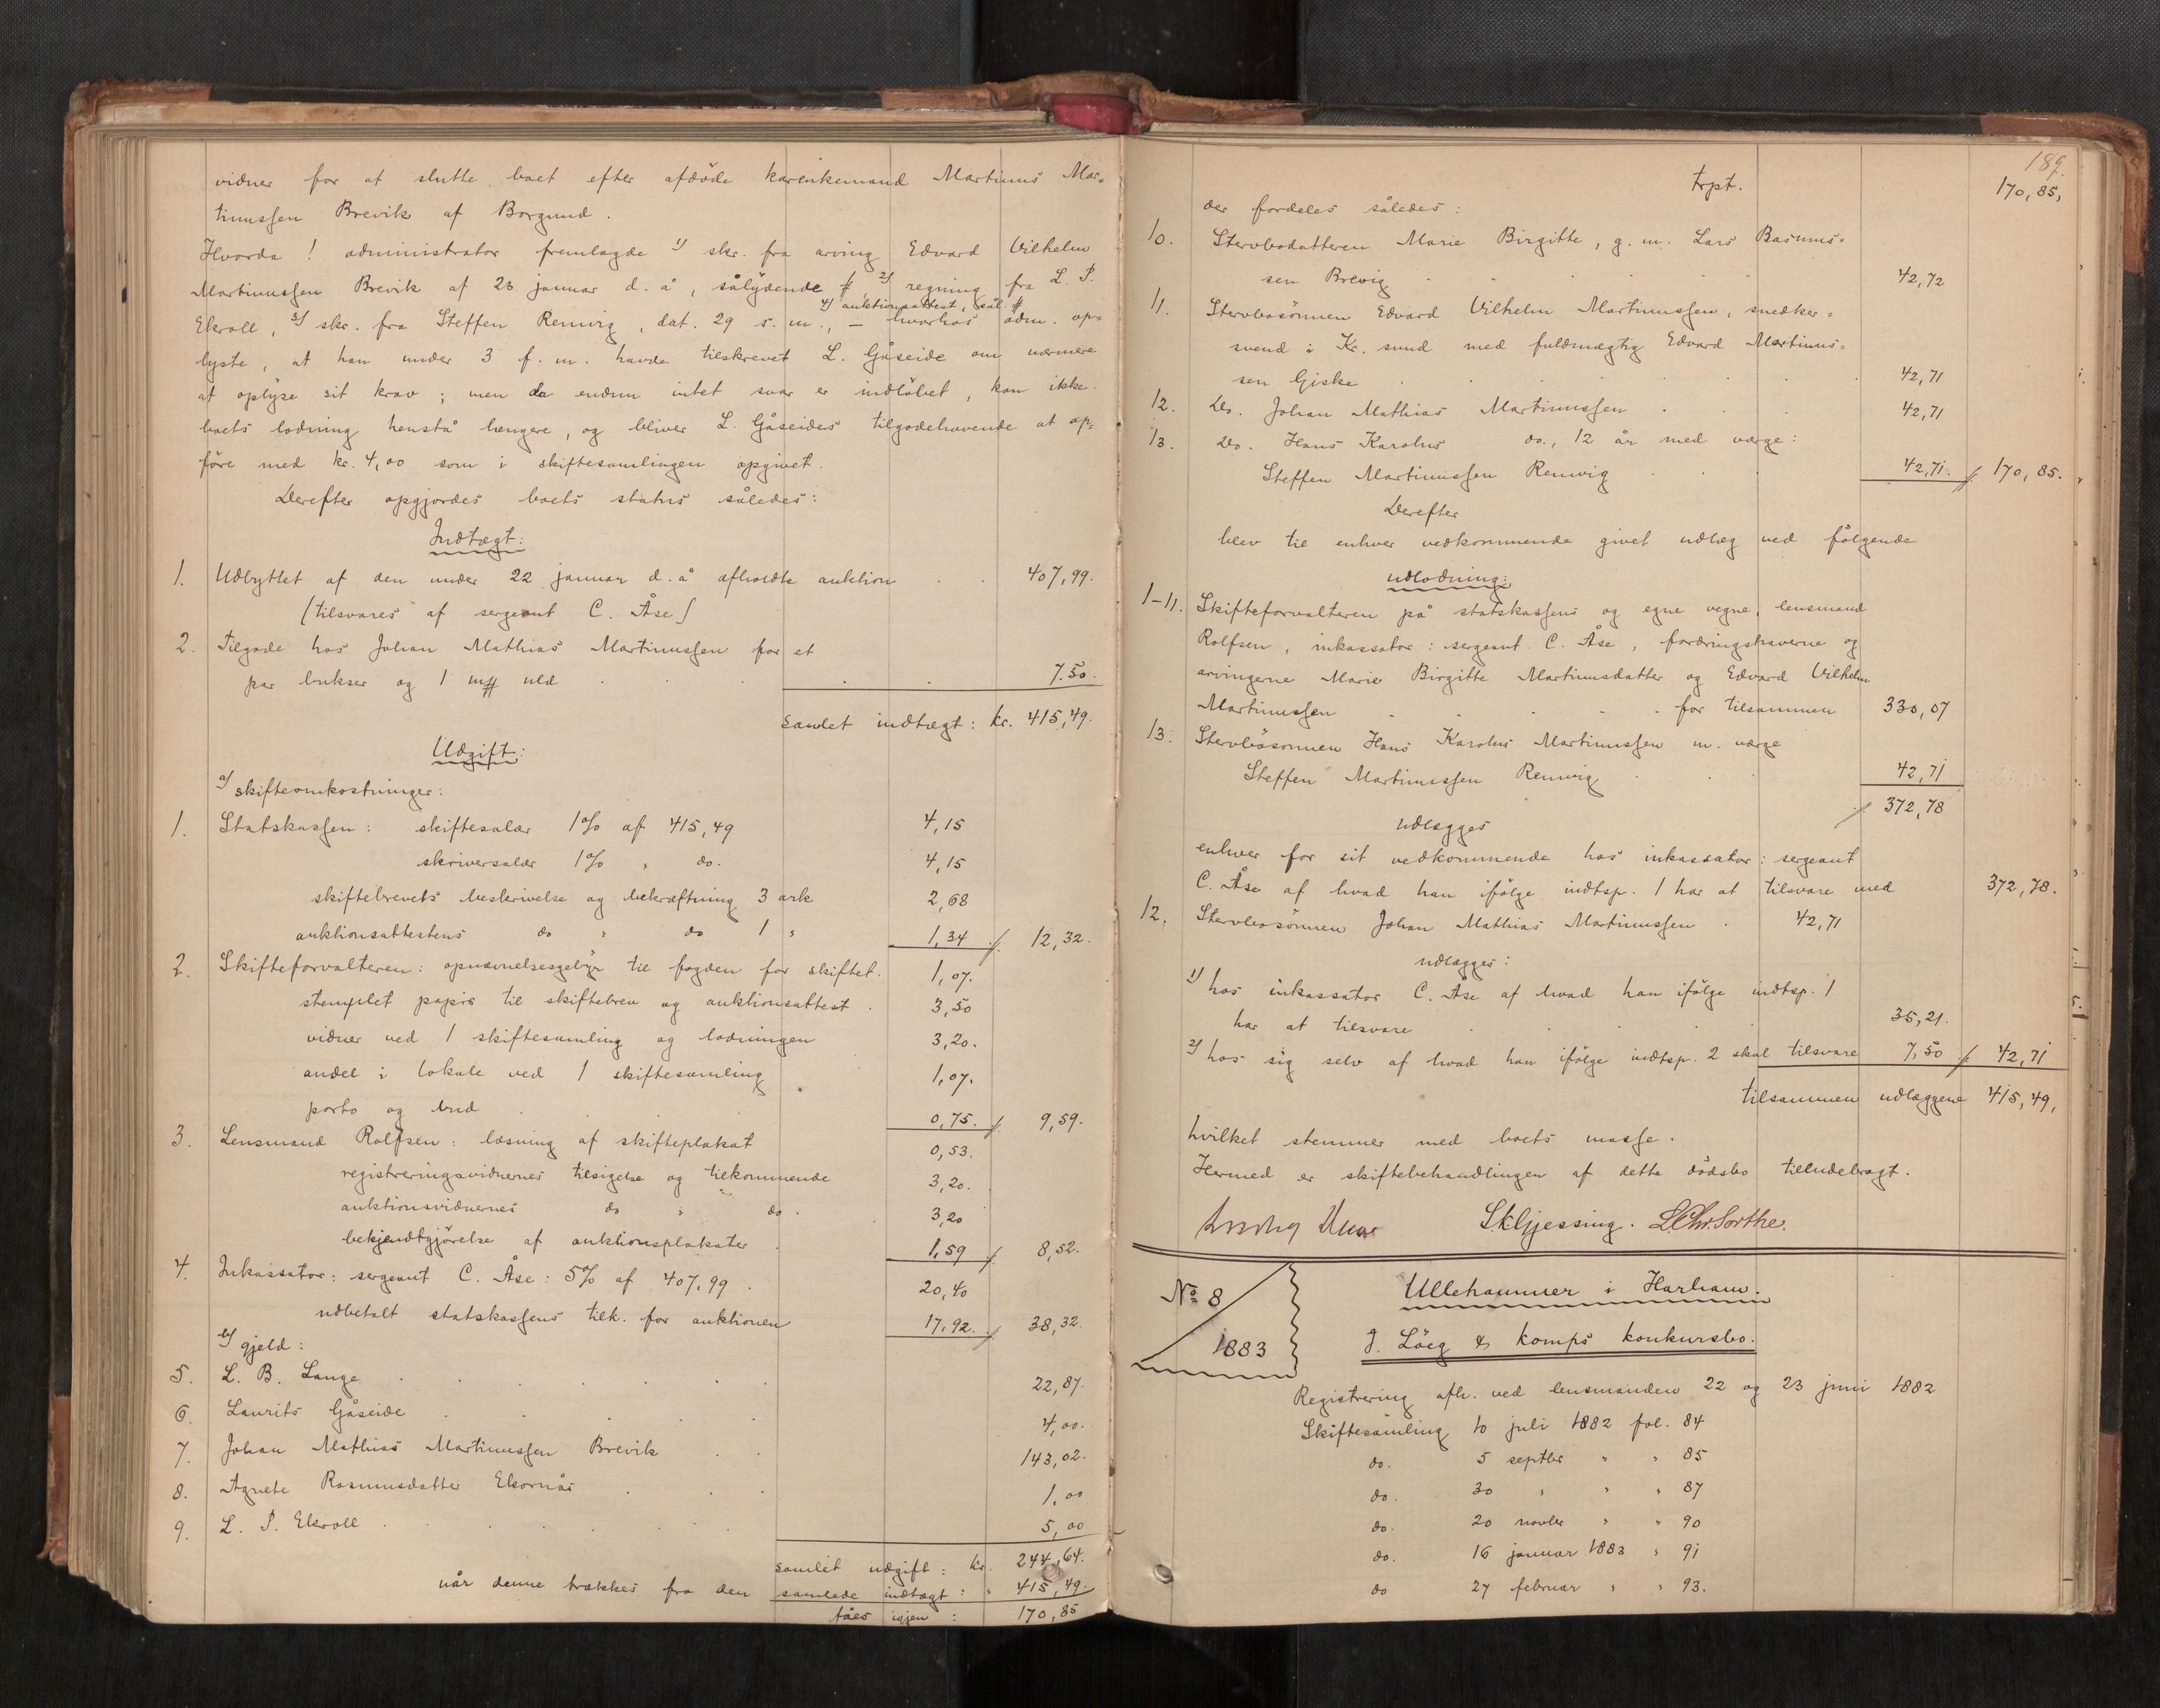 vidner for at slutte boet efter afdöde kårenkemand Martinus Mar=
tinussen Brevik af Borgund.
Hvorda! administrator fremlagde 1) skr. fra arving Edvard Vilhelm
Martinussen Brevik af 23 januar d. å, sålydende # 2) regning fra L. P.
4) auktionsattest, sål. #
Ekroll, 3) skr. fra Steffen Remvig, dat. 29 s. m., — hvorhos adm. op=
lyste, at han under 3 f. m. havde tilskrevet L. Gåseide om nærmere
at oplyse sit krav; men da endnu intet svar er indlöbet, kan ikke
boets lodning henstå længere, og bliver L. Gåseides tilgodehavende at op=
före med kr. 4,00 som i skiftesamlingen opgivet.
Derefter opgjordes boets status således:
Indtægt:
1. Udbyttet af den under 22 januar d. å afholdte auktion . . 407,99.
(tilsvares af sergeant C. Åse)
2. Tilgode hos Johan Mathias Martinussen for et
par bukser og 1 m# uld . . . . 7.50.
samlet indtægt: kr. 415,49.
Udgift:
a) skifteomkostninger:
1. Statskassen: skiftesalær 1% af 415,49 4,15
skriversalær 1% " do. 4,15
skiftebrevets beskrivelse og bekræftning 3 ark 2,68
auktionsattestens do " do 1 " 1,34 ./. 12,32.
2. Skifteforvalteren: opnævnelsesgebyr til fogden for skiftet. 1,07.
stemplet papir til skiftebrev og auktionsattest . 3,50
vidner ved 1 skiftesamling og lodningen 3,20.
andel i lokale ved 1 skiftesamling 1,07.
porto og bud . . . 0,75. ./. 9,59.
3. Lensmand Rolfsen: læsning af skifteplakat 0,53.
registreringsvidnernes tilsigelse og tilkommende 3,20.
auktionsvidnernes do " do. 3,20
bekjendtgjörelse af auktionsplakater . 1,59 ./. 8,52.
4. Inkassator: sergeant C. Åse: 5% af 407,99 . 20,40
udbetalt statskassens tilk. for auktionen 17,92. ./. 38,32.
b) gjeld:
5. L. B. Lange . . . . . 22,87.
6. Laurits Gåseide . . . . 4,00.
7. Johan Mathias Martinussen Brevik . . 143,02.
8. Agnete Rasmusdatter Ekornås . . 1,00
9. L. P. Ekroll . . . . . 5,00
samlet udgift: kr. 244,64.
når denne trækkes fra den samlede indtægt: " 415,49.
fåes igjen: 170,85
189.
trpt. 170,85,
der fordeles således:
10. Stervbodatteren Marie Birgitte, g. m. Lars Rasmus=
sen Brevig . . . . . 42,72
11. Stervbosönnen Edvard Vilhelm Martinussen, snedker=
svend i Kr. sund med fuldmægtig Edvard Martinus=
sen Giske . . . . . 42,71
12. Do. Johan Mathias Martinussen . . . 42,71
13. Do. Hans Karolus do., 12 år med værge:
Steffen Martinussen Remvig . . 42,71. ./. 170,85.
Derefter
blev til enhver vedkommende givet udlæg ved fölgende
udlodning:
1-11. Skifteforvalteren på statskassens og egne vegne, lensmand
Rolfsen, inkassator: sergeant C. Åse, fordringshaverne og
arvingerne Marie Birgitte Martinusdatter og Edvard Vilhelm
Martinussen . . . . . for tilsammen 330,07
13. Stervbosönnen Hans Karolus Martinussen m. værge
Steffen Martinussen Remvig . . 42,71
./. 372,78
udlægges
enhver for sit vedkommende hos inkassator: sergeant
C. Åse af hvad han ifölge indtsp. 1 har at tilsvare med 372,78.
12. Stervbosönnen Johan Mathias Martinussen . 42,71
udlægges:
1) hos inkassator C. Åse af hvad han ifölge indtsp. 1
har at tilsvare . . . . 35,21.
2) hos sig selv af hvad han ifölge indtsp. 2 skal tilsvare 7,50 ./. 42,71
tilsammen udlæggene 415,49,
hvilket stemmer med boets masse.
Hermed er skiftebehandlingen af dette dödsbo tilendebragt.
S. K. Gjessing. L. Chr. Sorthe.
No 8
1883
Ullehammer i Harham.
J. Löeg & komps konkursbo.
Registrering afh. ved lensmanden 22 og 23 juni 1882
Skiftesamling 10 juli 1882 fol. 84
do. 5 septbr " " 85
do. 30 " " " 87
do. 20 novbr " " 90
do. 16 januar 1883 " 91
do 27 februar " " 93.